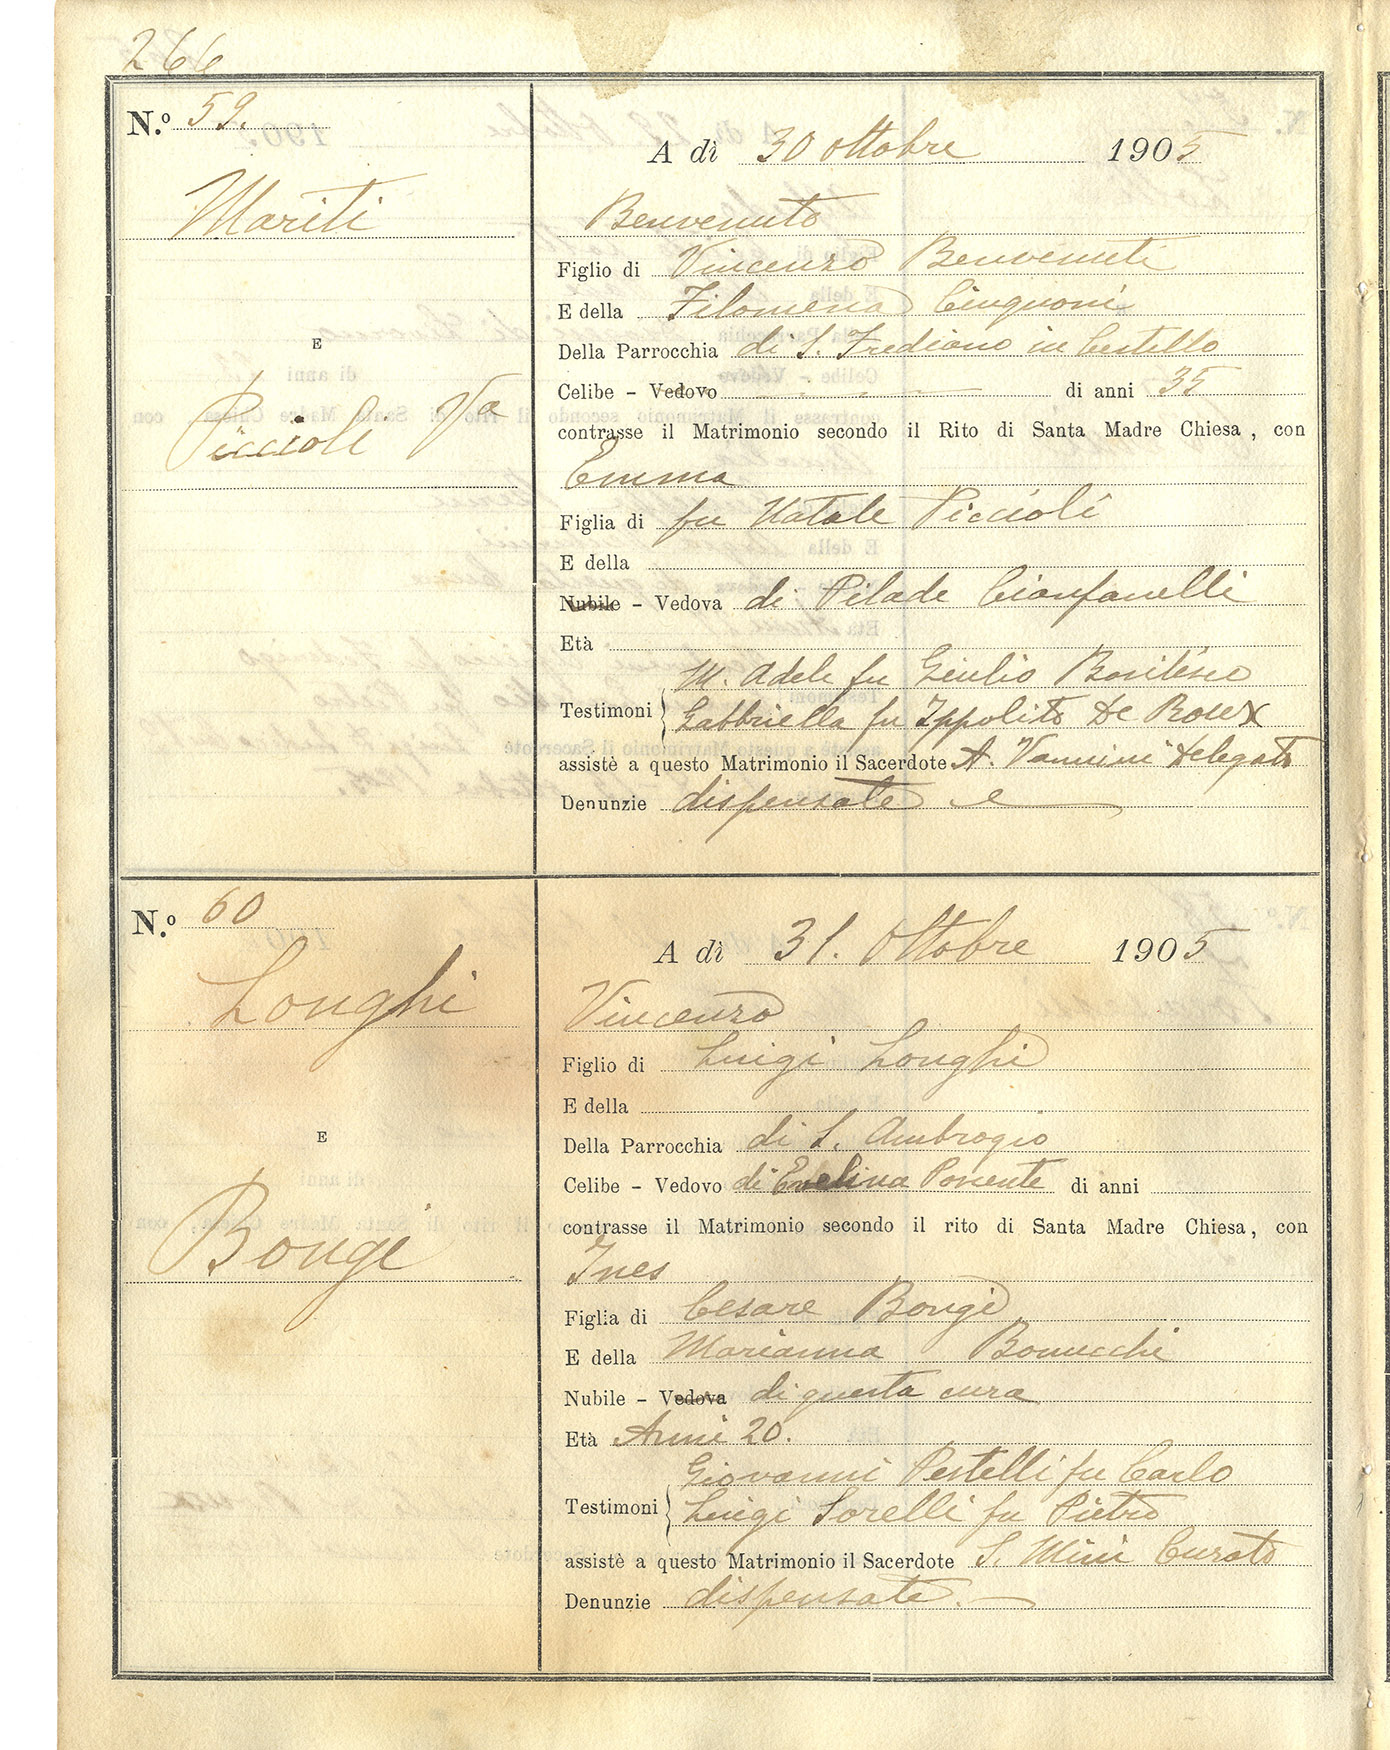 266
N.º 59.
A dì 30 Ottobre 1905
Mariti
Benvenuto
Figlio di Vincenzo Benvenuti
E della Filomena Cinquoni
Della Parrocchia di S. Frediano in Cestello
E
Celibe - Vedovo di anni 35
Piccioli Va
contrasse il Matrimonio secondo il Rito di Santa Madre Chiesa, con
Emma
Figlia di fu Natale Piccioli
E della
Nubile - Vedova di Pilade Cianfanelli
Età
M. Adele fu Giulio
Testimoni Gabbriella fu Ippolito De Roux
assistè a questo Matrimonio il Sacerdote A. Vannini delegato
Denunzie dispensate
N.º 60
A dì 31. Ottobre 1905
Longhi
Vincenzo
Figlio di Luigi Longhi
E della
Della Parrocchia di S. Ambrogio
E
Celibe - Vedovo di Evelina Ponente di anni
contrasse il Matrimonio secondo il rito di Santa Madre Chiesa, con
Bongi
Ines
Figlia di Cesare Bongi
E della Marianna Bonucchi
Nubile - Vedova di questa cura
Età Anni 20.
Giovanni Pestelli fu Carlo
Testimoni Luigi Sorelli fu Pietro
assistè a questo Matrimonio il Sacerdote S. Mini Curato
Denunzie dispensate.